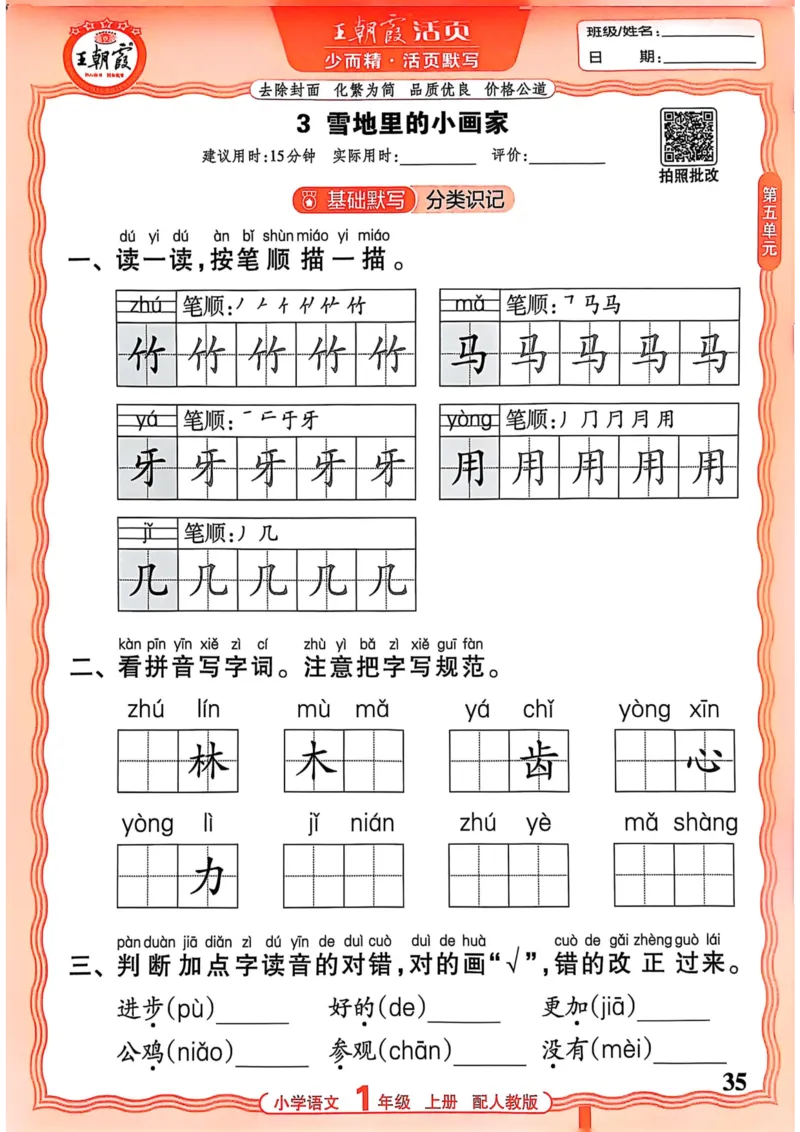 王朝霞
王朝霞 活页
少而精·活页默写
班级/姓名：
日 期：
去除封面 化繁为简 品质优良 价格公道
3 雪地里的小画家
建议用时：15分钟 实际用时： 评价：
拍照批改
第五单元
基础默写 分类识记
dú yi dú àn bǐ shùn miáo yi miáo
一、读一读，按笔顺描一描。
zhú 笔顺：丿 𠂉 亻 竹 mǎ 笔顺：㇕ 马 马
竹 竹 竹 竹 竹 马 马 马 马 马
yá 笔顺：一 二 于 牙 yòng 笔顺：丿 冂 月 月 用
牙 牙 牙 牙 牙 用 用 用 用 用
jǐ 笔顺：丿 几
几 几 几 几 几
kàn pīn yīn xiě zì cí zhù yì bǎ zì xiě guī fàn
二、看拼音写字词。注意把字写规范。
zhú lín mù mǎ yá chǐ yòng xīn
林 木 齿 心
yòng lì jǐ nián zhú yè mǎ shàng
力
pàn duàn jiā diǎn zì dú yīn de duì cuò duì de huà cuò de gǎi zhèng guò lái
三、判断加点字读音的对错，对的画“√”，错的改正过来。
进步(pù) 好的(de) 更加(jiā)
公鸡(niǎo) 参观(chān) 没有(mèi)
35
小学语文 1年级 上册 配人教版